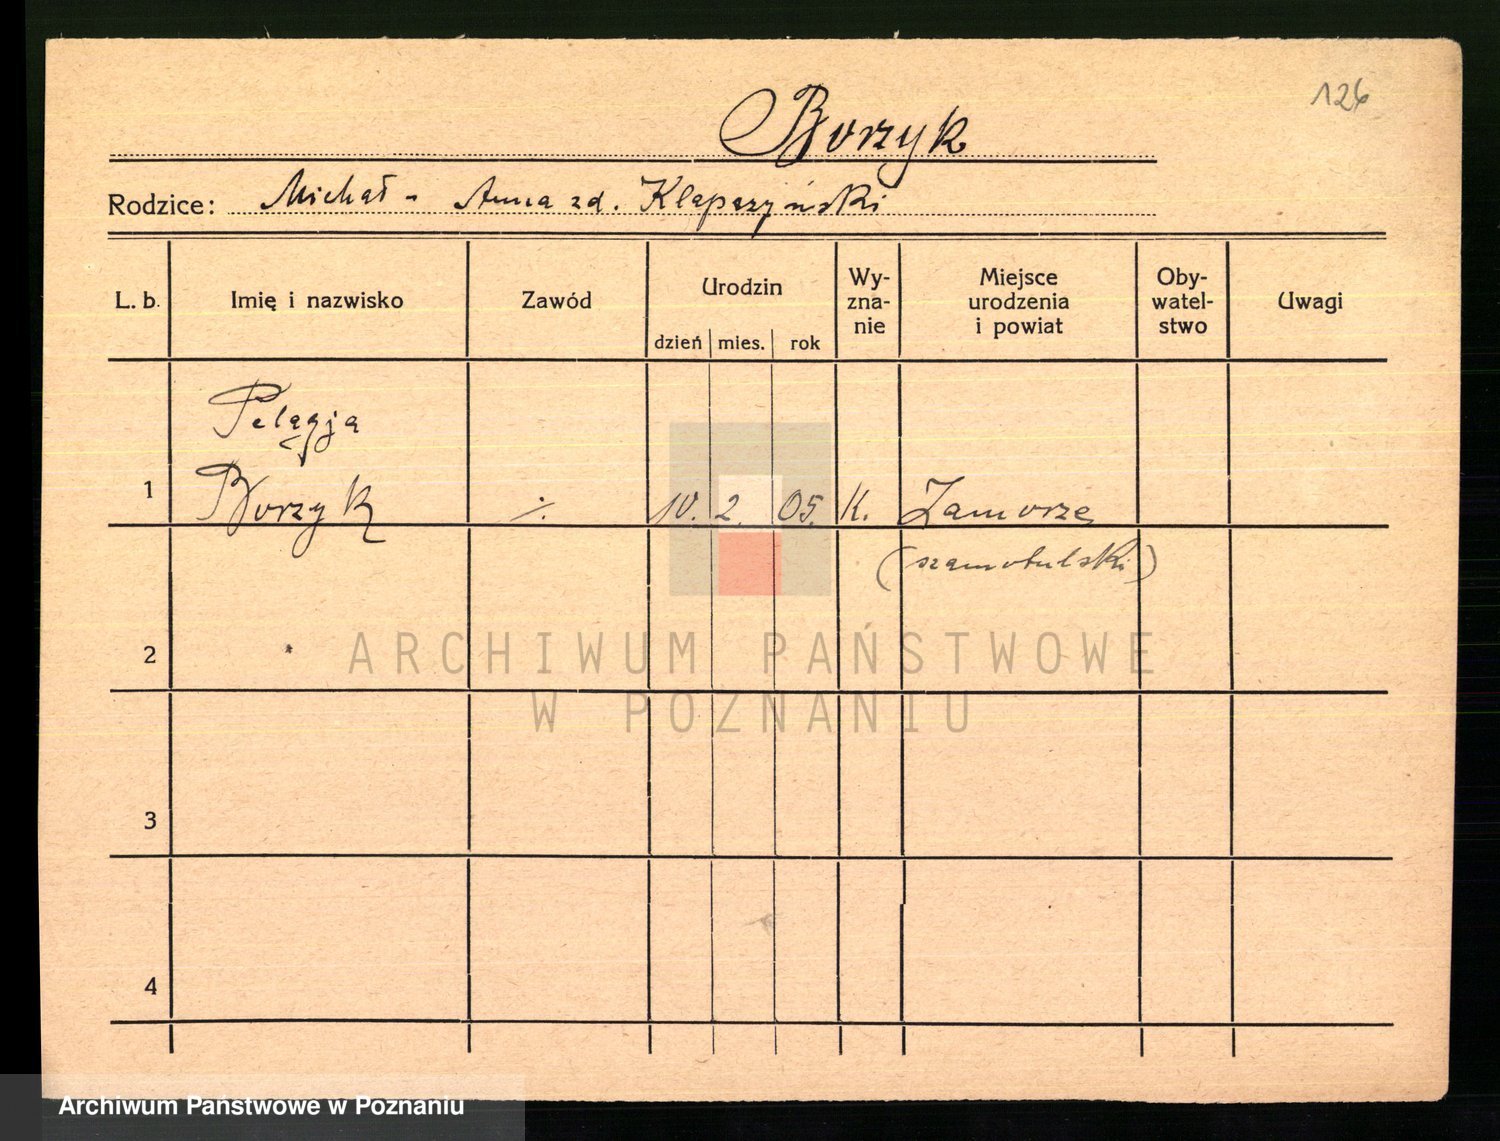 126
Borzyk
Rodzice: Michał - Anna zd. Klapczyński
L. b. Imię i nazwisko Zawód Urodzin Wy-zna-nie Miejsce urodzenia i powiat Oby-watel-stwo Uwagi
dzień mies. rok
Pelagja
1 Borzyk ./. 10. 2. 05. K. Zamorze
(szamotulski)
2
ARCHIWUM PAŃSTWOWE
W POZNANIU
3
4
Archiwum Państwowe w Poznaniu